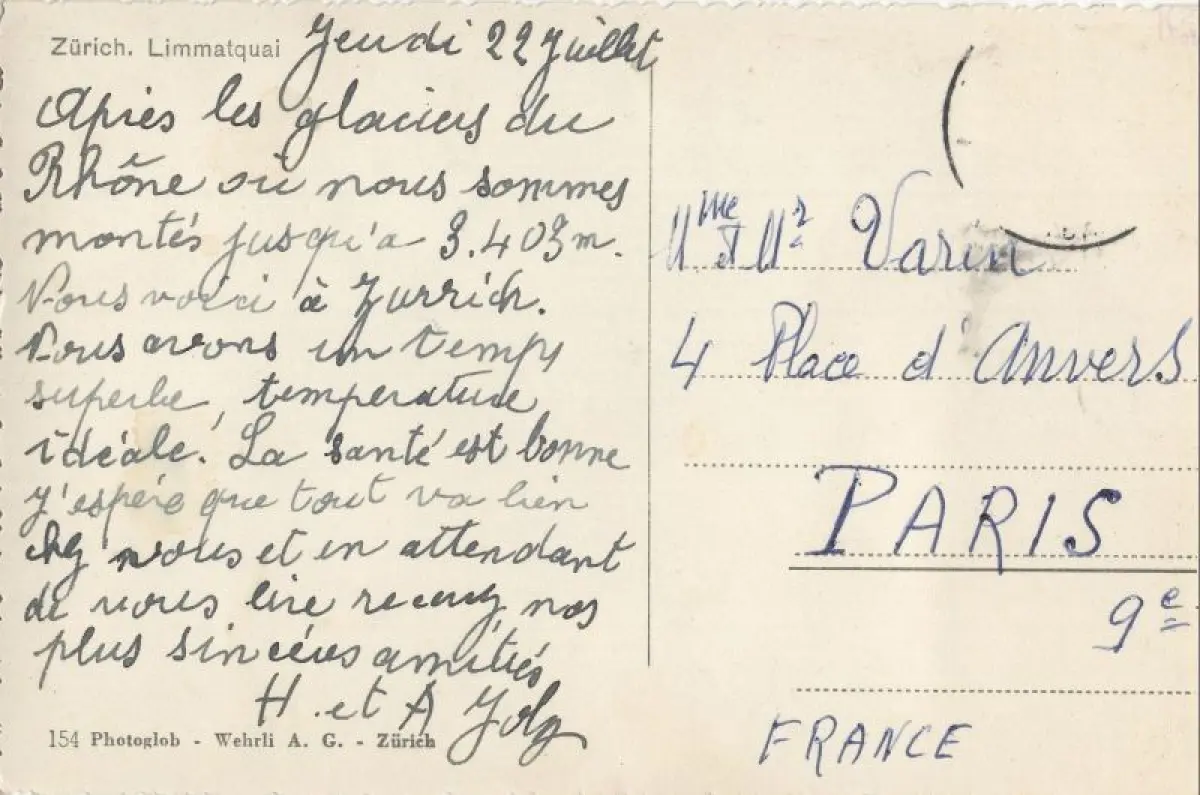 Zürich. Limmatquai
Jeudi 22 Juillet
Après les glaciers du
Rhône où nous sommes
montés jusqu'a 3.403m.
Nous voici à Zurrich.
Nous avons un temps
superbe, temperature
idéale. La santé est bonne
j'espère que tout va bien
chez vous et en attendant
de vous lire recevez nos
plus sincères amitiés
H. et A
154 Photoglob - Wehrli A. G. - Zürich
Mme et Mr Varin
4 Place d'Anvers
PARIS
9e
FRANCE